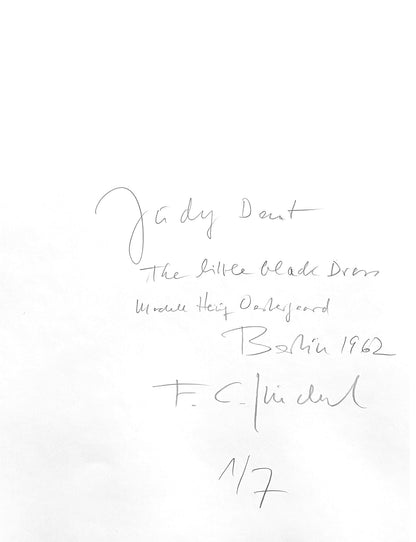 Judy Dent
The little black Dress
Modell Heinz Oestergaard
Berlin 1962
F. C. Gundlach
1/7